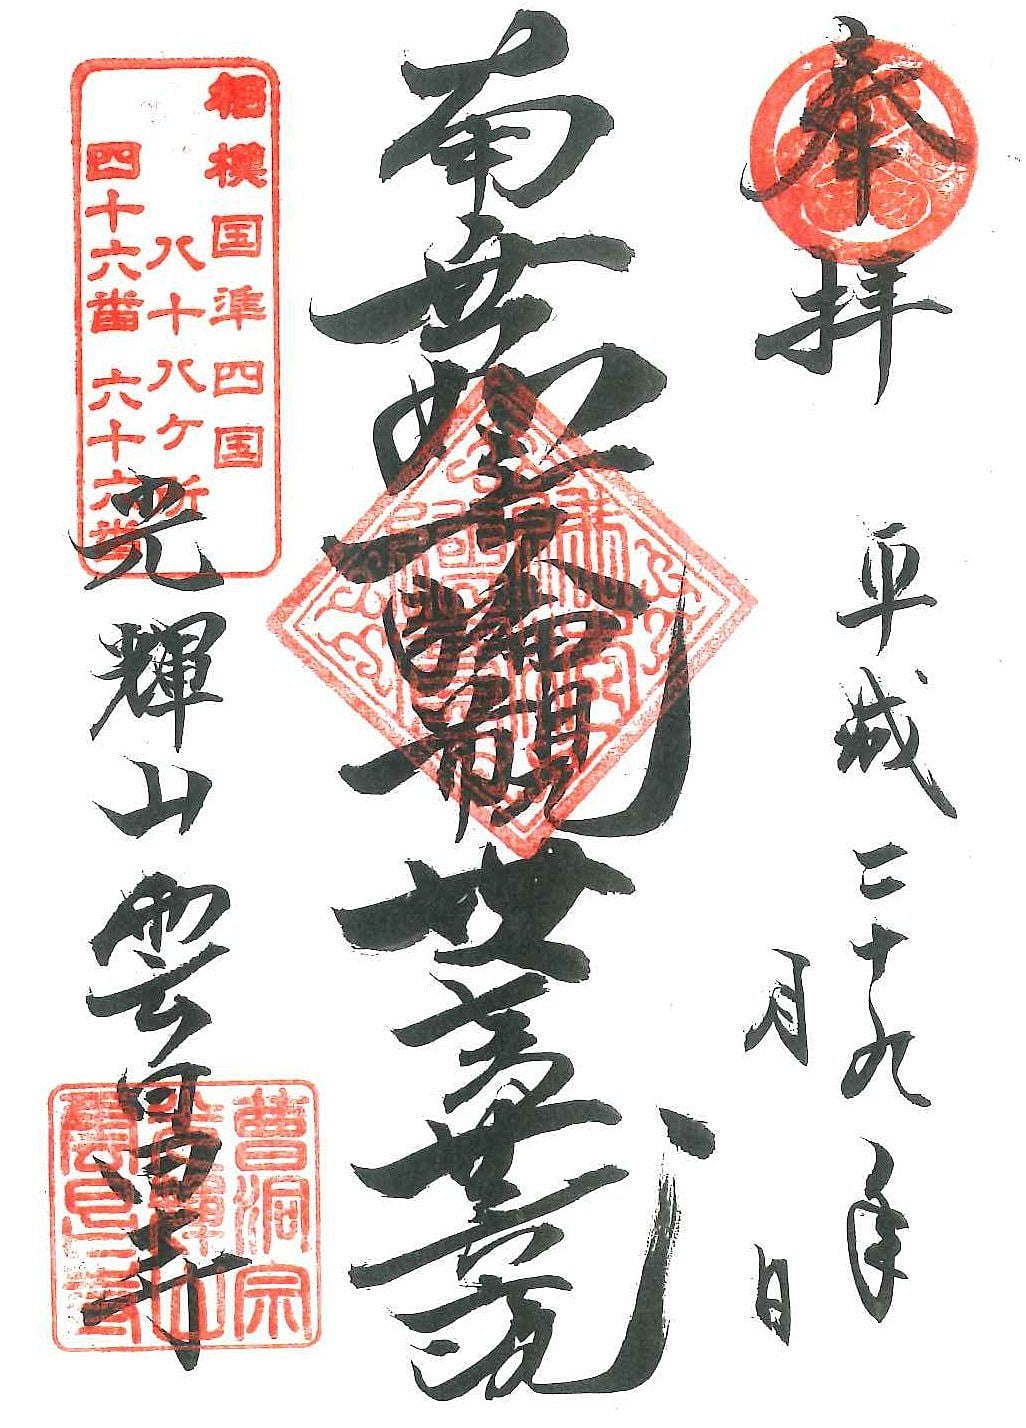 奉拝
平成二十九年
月 日
南無如
観世音菩薩
相模国準四国
八十八ヶ所
四十六番 六十六番
光輝山 雲昌寺
曹洞宗
光輝山
雲昌寺